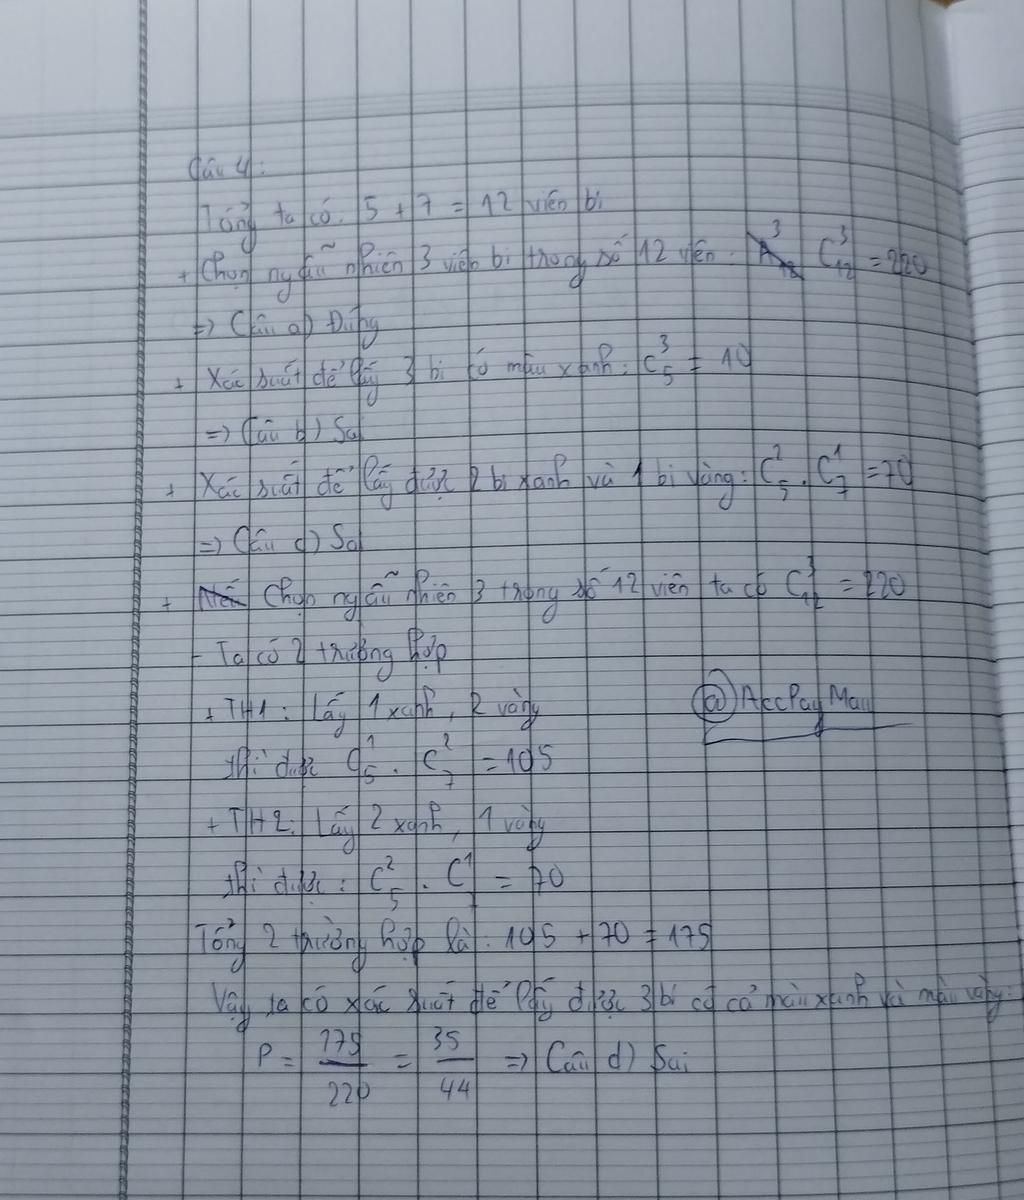 Câu 4:
Tổng ta có. 5 + 7 = 12 viên bi
+ Chọn ngẫu nhiên 3 viên bi trong số 12 viên. C³₁₂ = 220
=> Câu a) Đúng
+ Xác suất để lấy 3 bi có màu xanh: C³₅ = 10
=> Câu b) Sai
+ Xác suất để lấy được 2 bi xanh và 1 bi vàng: C²₅ . C¹₇ = 70
=> Câu c) Sai
+ Chọn ngẫu nhiên 3 trong số 12 viên ta có C³₁₂ = 220
- Ta có 2 trường hợp
+ TH1: Lấy 1 xanh, 2 vàng
@AccPayMau
thì được C¹₅ . C²₇ = 105
+ TH2: Lấy 2 xanh, 1 vàng
thì được: C²₅ . C¹₇ = 70
Tổng 2 trường hợp là: 105 + 70 = 175
Vậy ta có xác suất để lấy được 3 bi có cả màu xanh và màu vàng:
P = 175/220 = 35/44 => Câu d) Sai